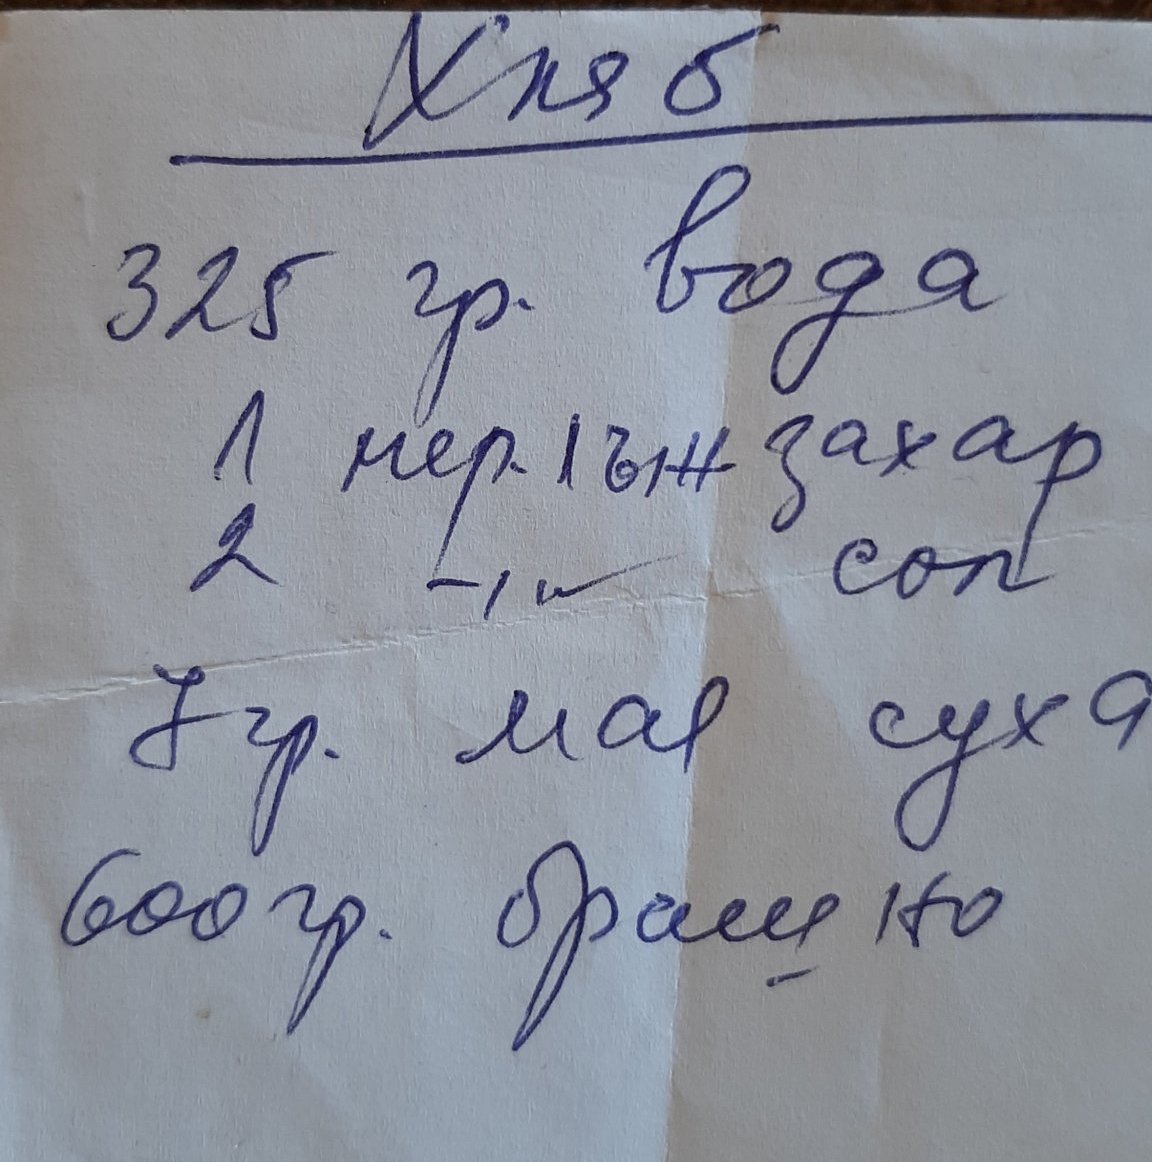 Хляб
325 гр. вода
1 мер. лъж захар
2 -〃- сол
7 гр. мая суха
600 гр. брашно